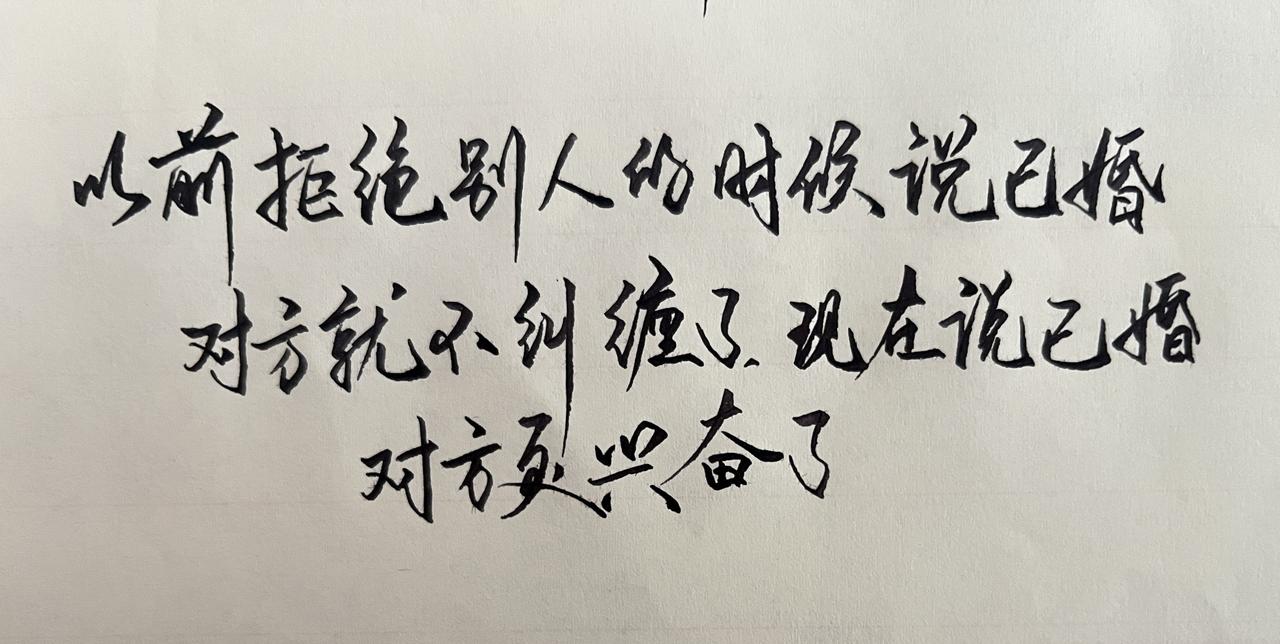 以前拒绝别人的时候说已婚
对方就不纠缠了.现在说已婚
对方更兴奋了